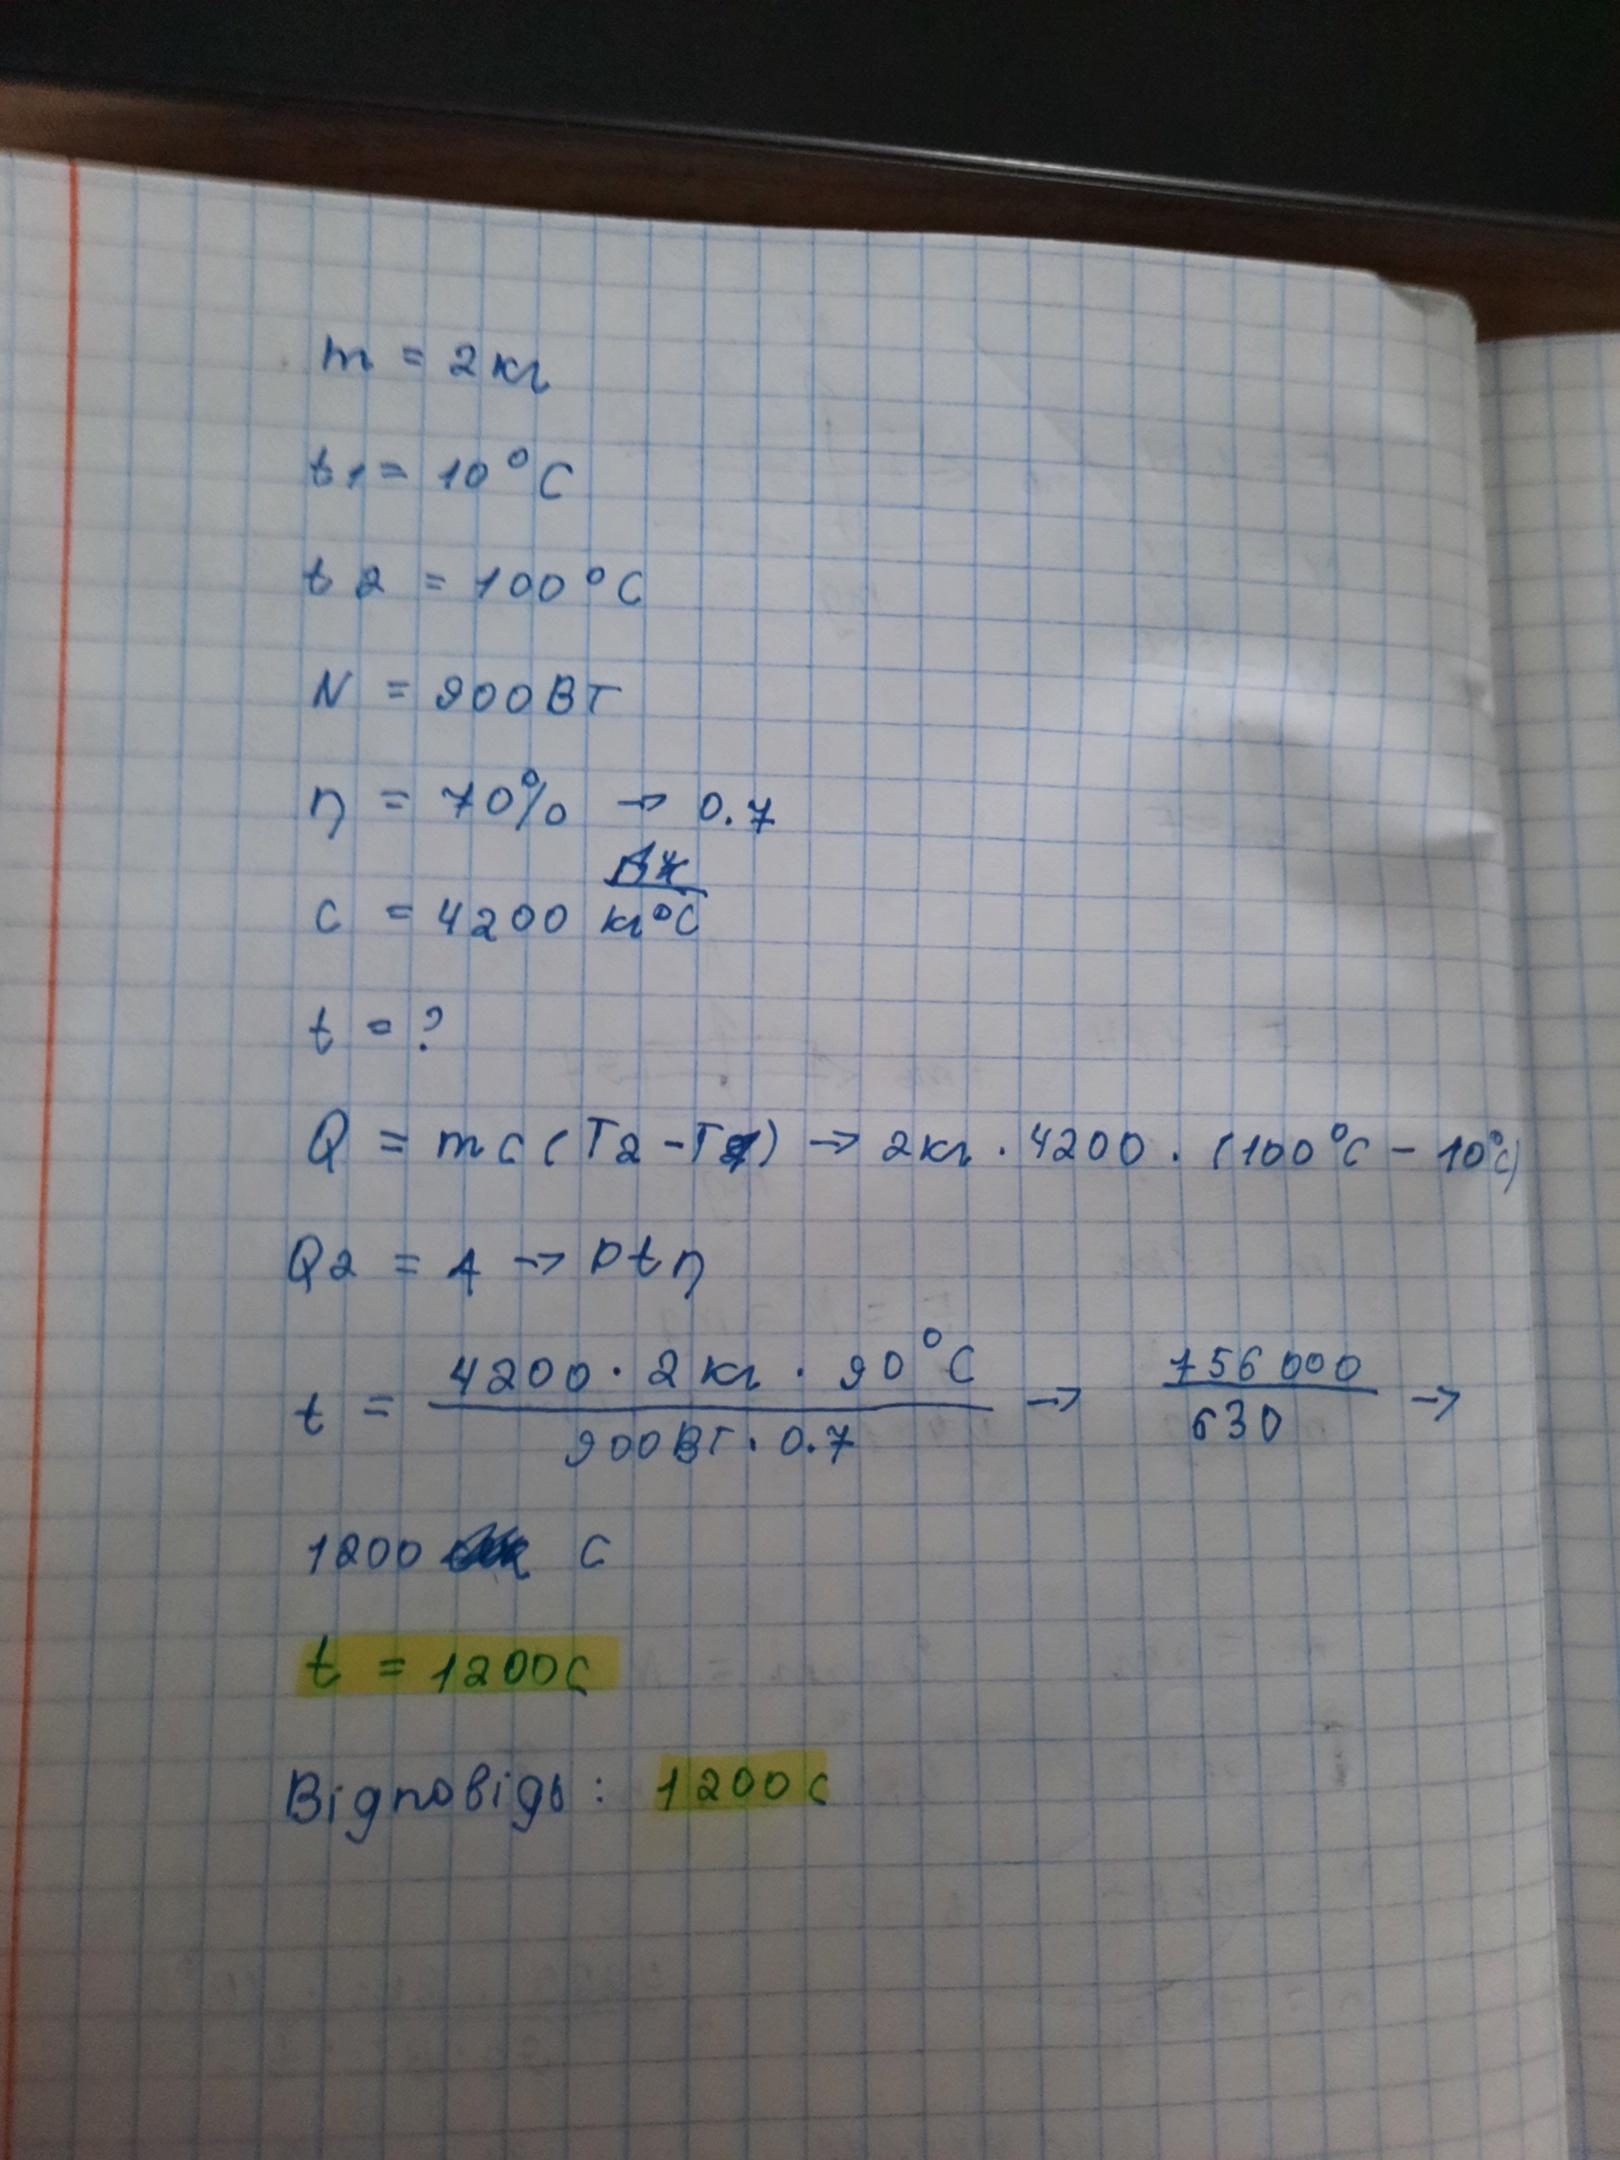 m = 2кг
t1 = 10°C
t2 = 100°C
N = 900Вт
η = 70% → 0.7
c = 4200 Дж/кг°C
t = ?
Q = mc(T2-T1) → 2кг · 4200 · (100°C - 10°C)
Q2 = A → Ptη
t = 4200 · 2кг · 90°C / 900Вт · 0.7 → 756000 / 630 →
1200 с
t = 1200с
Відповідь: 1200с